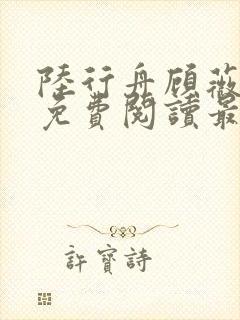 陸行舟顾薇
免費閱讀最
許寶詩